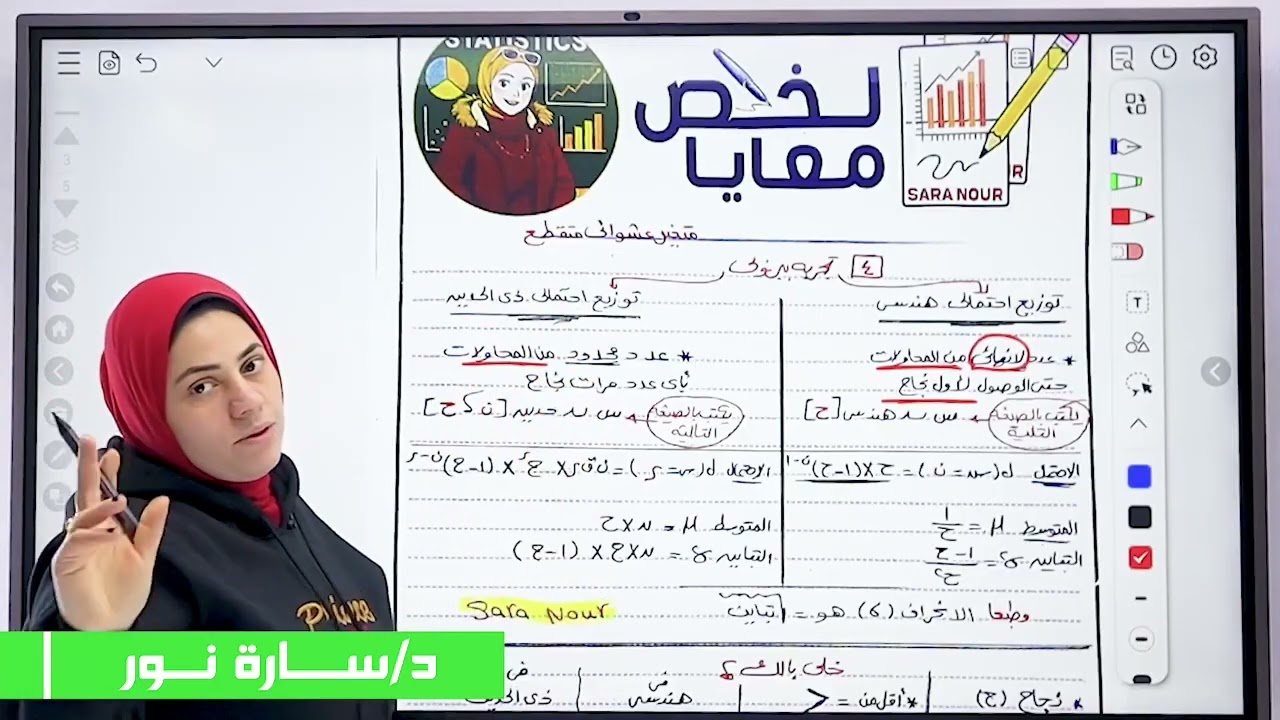 STATISTICS
لخص
معايا
SARA NOUR
R
متغير عشوائى متقطع
٤ تجربة بيرنولى
توزيع احتمالى هندسى
* عدد لانهائى من المحاولات
حتى الوصول لأول نجاح
يكتب بالصيغة التالية
س ~ هندسى [ح]
الاحتمال ل(س = ن) = ح × (١ - ح)^ن-١
المتوسط μ = ١/ح
التباين σ² = (١ - ح)/ح²
توزيع احتمالى ذى الحدين
* عدد محدود من المحاولات
بأى عدد مرات نجاح
يكتب بالصيغة التالية
س ~ حدين [ن ، ح]
الاحتمال ل(س = ر) = نقر × ح^ر × (١ - ح)^ن-ر
المتوسط μ = ن × ح
التباين σ² = ن × ح × (١ - ح)
وطبعا الانحراف (σ) هو = √تباين
Sara Nour
خلى بالك
* نجاح (ح)
* أقل من = >
فى هندسى
فى ذى الحدين
3
5
T
د/سارة نور